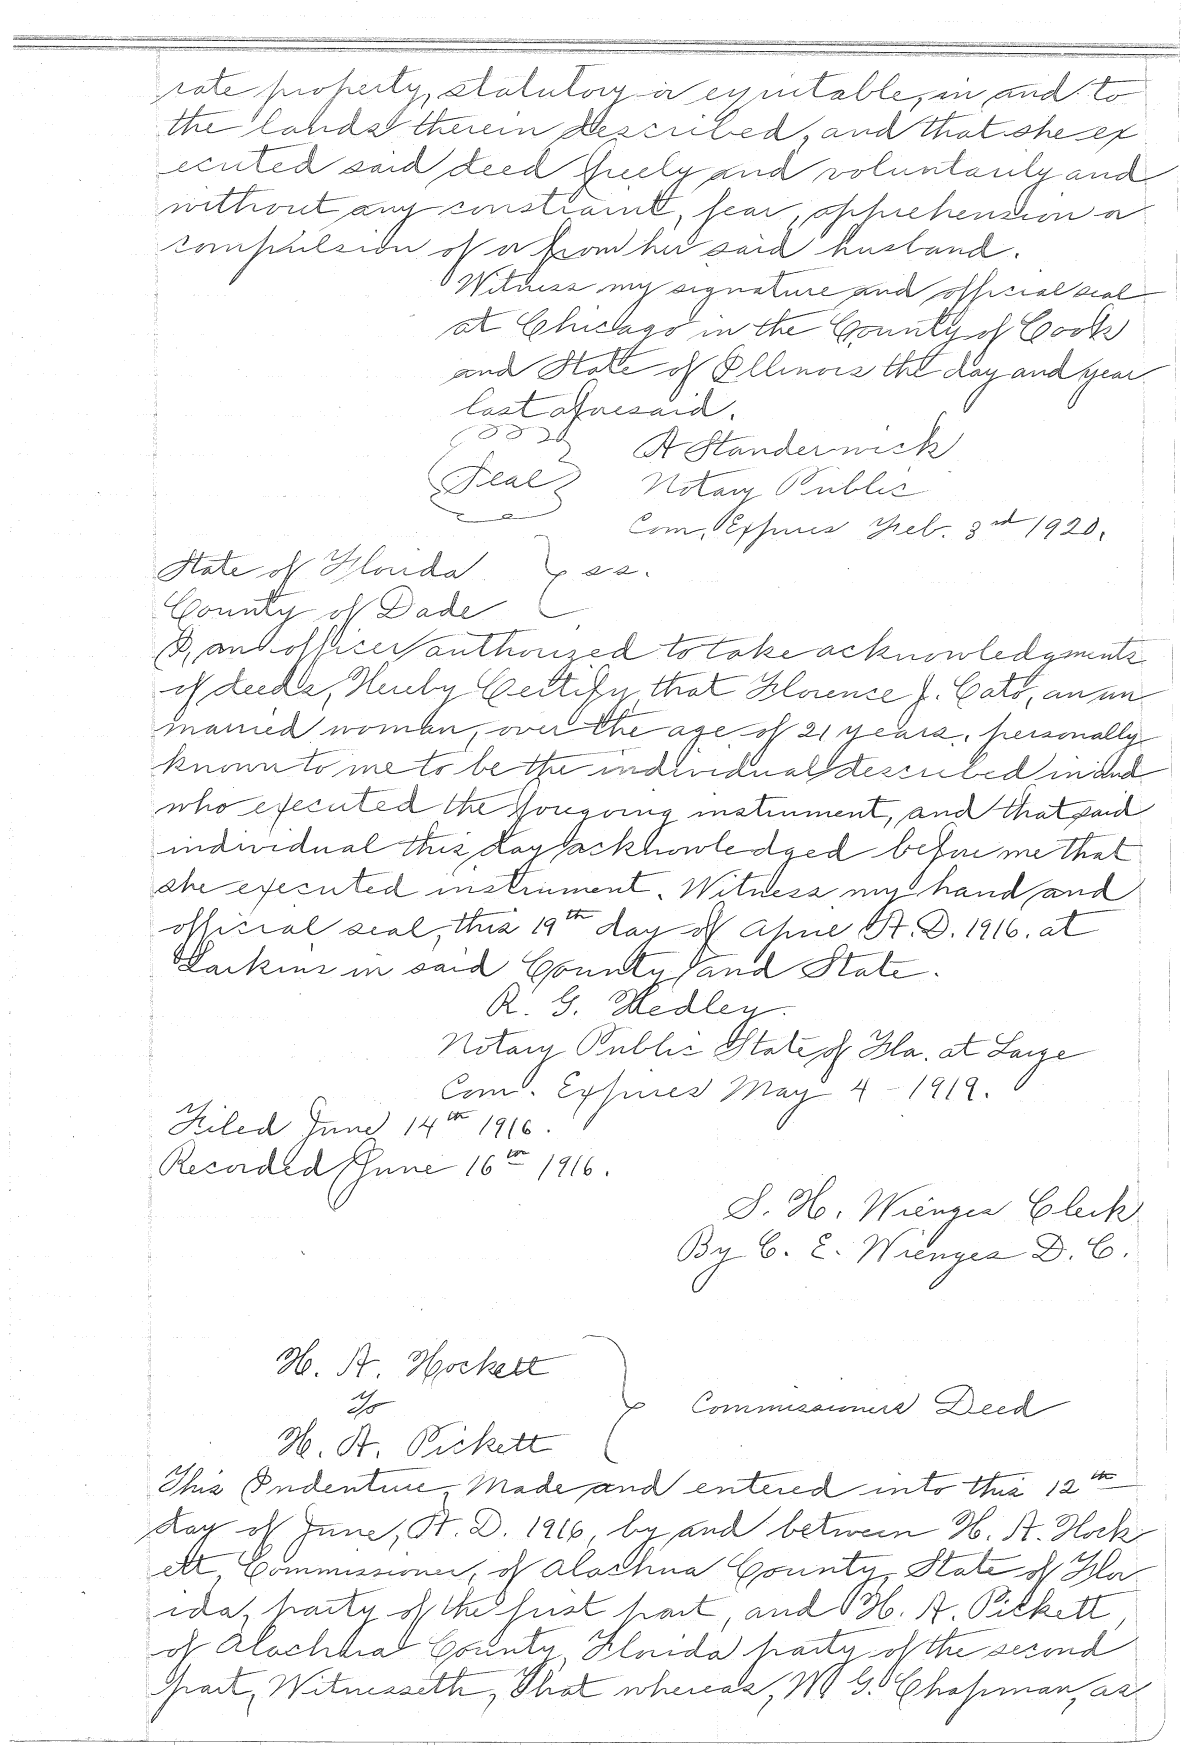 rate property, statutory or equitable, in and to
the lands therein described, and that she ex
ecuted said deed freely and voluntarily and
without any constraint, fear, apprehension or
compulsion of or from her said husband.
Witness my signature and official seal
at Chicago in the County of Cook
and State of Illinois the day and year
last aforesaid.
A Standerwick
Seal
Notary Public
Com. Expires Feb. 3rd 1920.
State of Florida } ss.
County of Dade
I, an officer authorized to take acknowledgments
of deeds, Hereby Certify, that Florence J. Cato, an un
married woman, over the age of 21 years, personally
known to me to be the individual described in and
who executed the foregoing instrument, and that said
individual this day acknowledged before me that
she executed instrument. Witness my hand and
official seal, this 19th day of April A.D. 1916. at
Larkins in said County and State.
R. G. Hedley.
Notary Public State of Fla. at Large
Com. Expires May 4 - 1919.
Filed June 14th 1916.
Recorded June 16th 1916.
S. H. Wienges Clerk
By C. E. Wienges D. C.
H. A. Hockett
To } Commissioners Deed
H. A. Pickett
This Indenture, Made and entered into this 12th
day of June, A. D. 1916, by and between H. A. Hock
ett, Commissioner, of Alachua County, State of Flor
ida, party of the first part, and H. A. Pickett,
of Alachua County, Florida party of the second
part, Witnesseth, That whereas, W G. Chapman, as